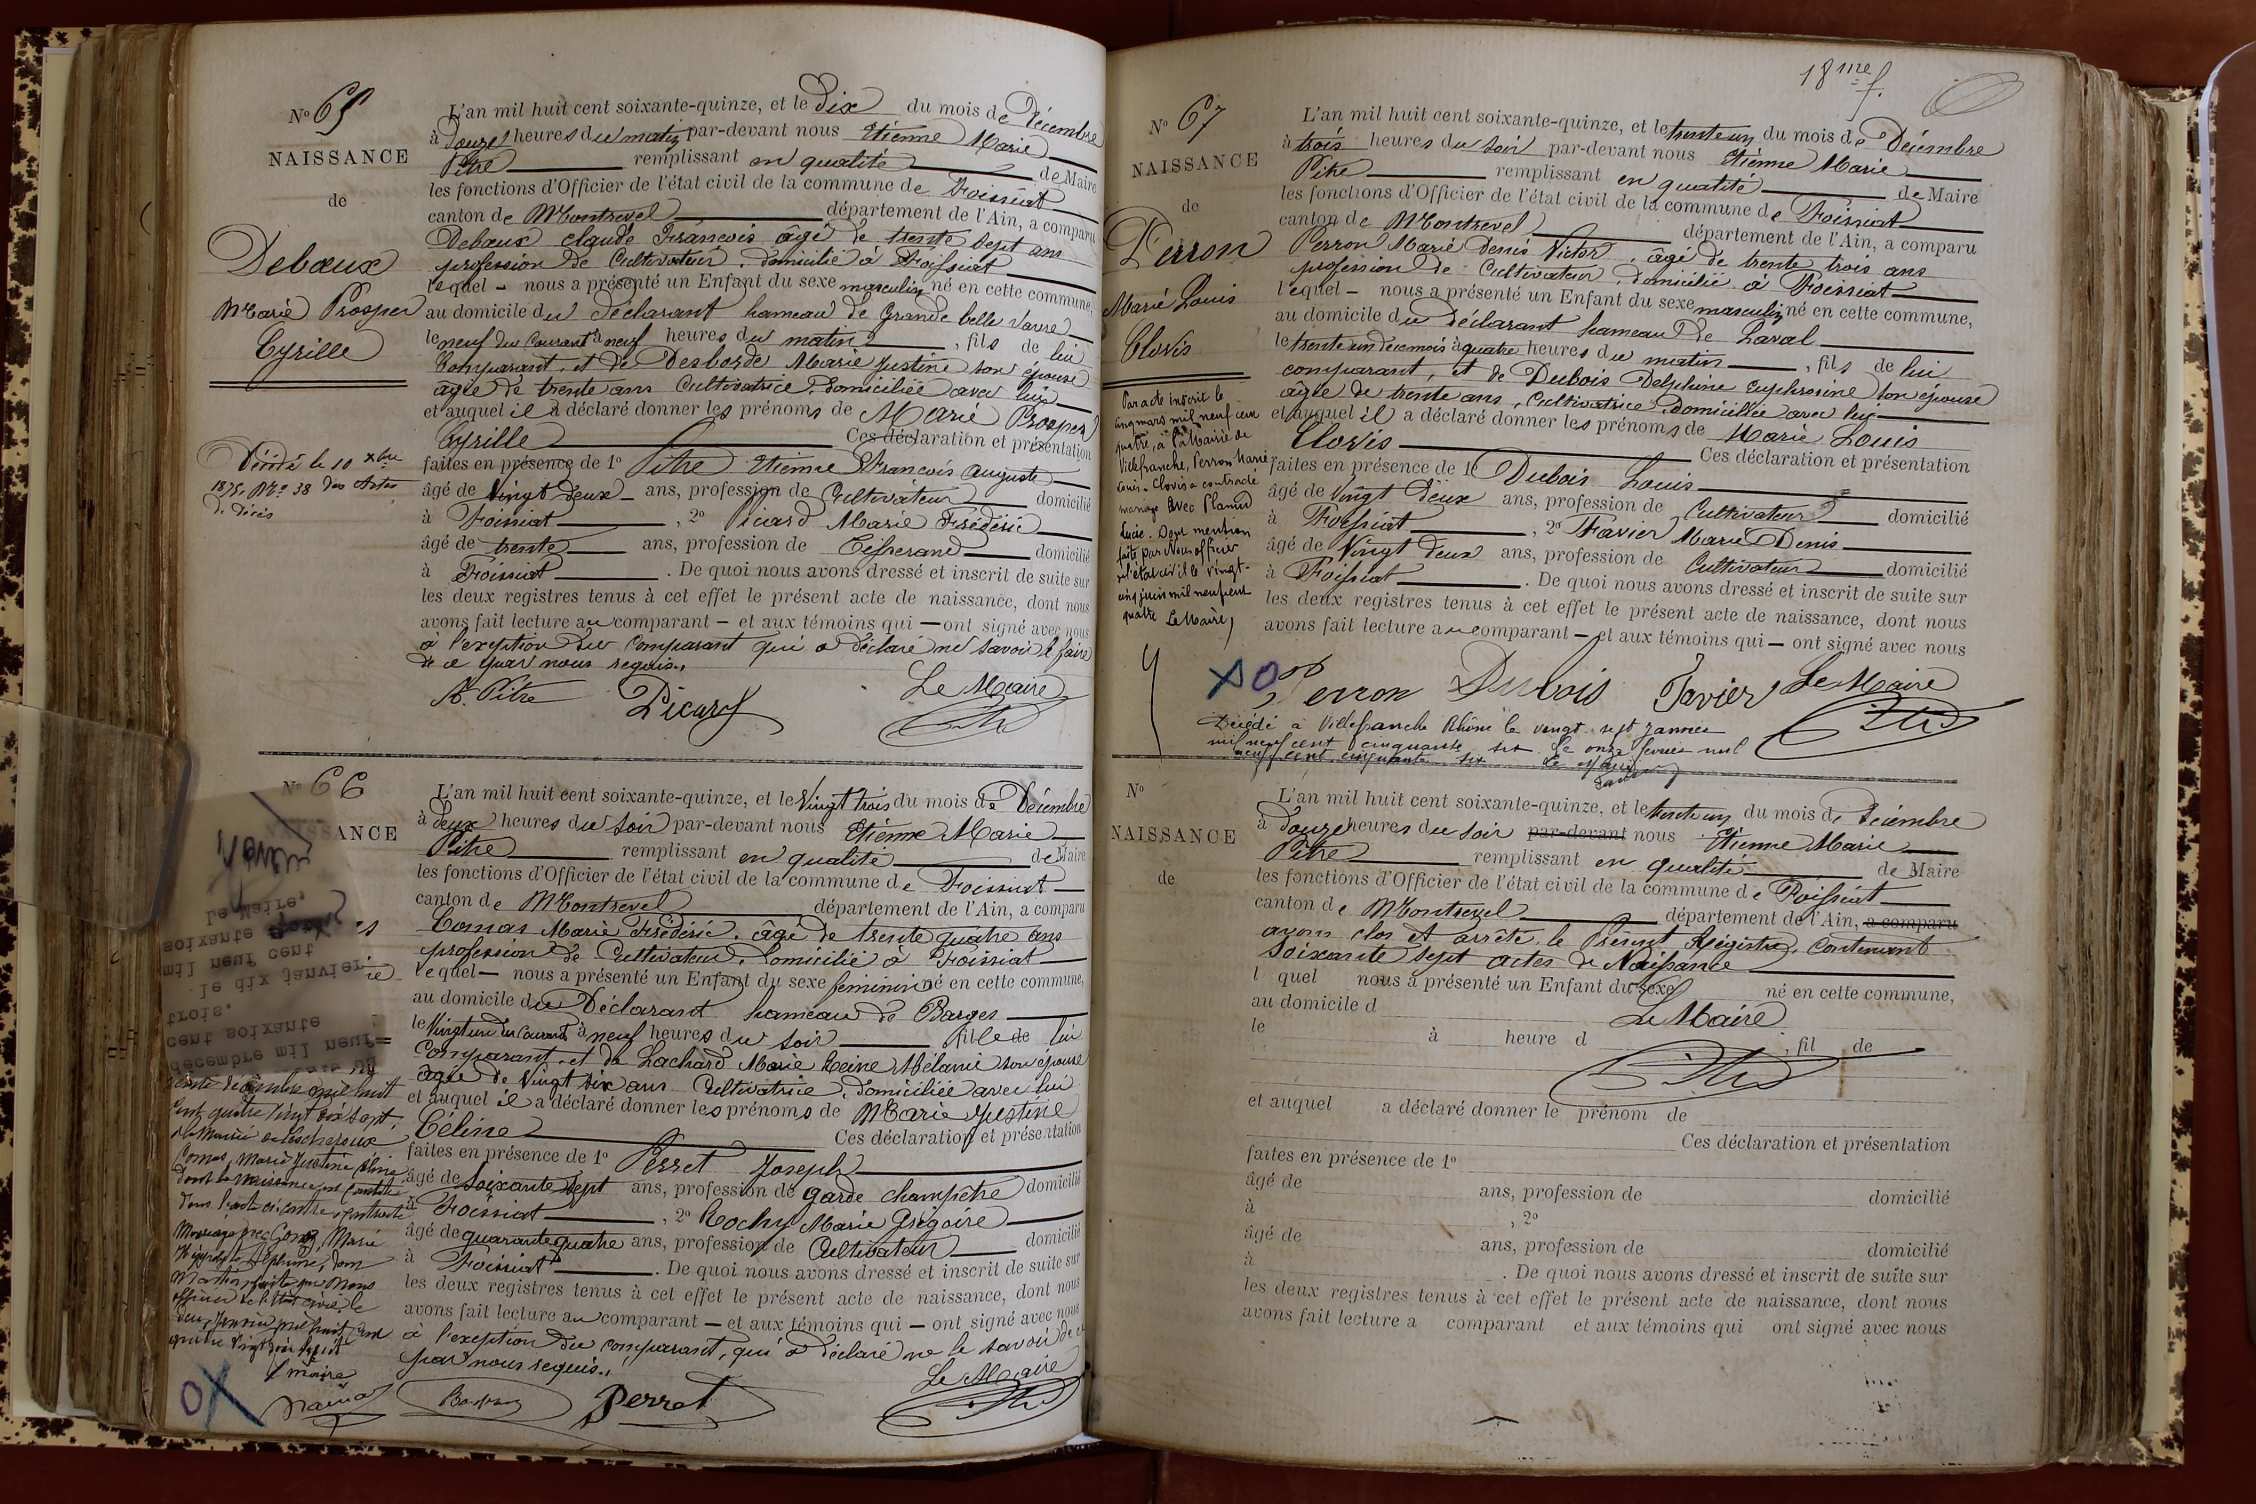 No 65
NAISSANCE
de
Debœux
Marie Prosper
Cyrille
Décédé le 10 xbre
1875, No 38 des Actes
de décès
L'an mil huit cent soixante-quinze, et le dix du mois de Décembre
à douze heures du matin par-devant nous Etienne Marie
Pitre remplissant en qualité de Maire
les fonctions d'Officier de l'état civil de la commune de Foissiat
canton de Montrevel département de l'Ain, a comparu
Debœux claude François âgé de trente sept ans
profession de Cultivateur, domicilié à Foissiat
lequel nous a présenté un Enfant du sexe masculin né en cette commune,
au domicile du déclarant hameau de Grande belle vavre
le neuf du Courant à neuf heures du matin, fils de lui
Comparant, et de Desborde Marie Justine son épouse
âgée de trente ans Cultivatrice, domiciliée avec lui
et auquel il a déclaré donner les prénoms de Marie Prosper
Cyrille Ces déclaration et présentation
faites en présence de 1o Pitre Etienne François Auguste
âgé de Vingt deux ans, profession de Cultivateur domicilié
à Foissiat, 2o Picard Marie Frédéric
âgé de trente ans, profession de Tisserand domicilié
à Foissiat. De quoi nous avons dressé et inscrit de suite sur
les deux registres tenus à cet effet le présent acte de naissance, dont nous
avons fait lecture au comparant et aux témoins qui ont signé avec nous
à l'exception du Comparant qui a déclaré ne savoir le faire
de ce par nous requis.
A. Pitre Picard Le Maire
No 66
ANCE
Le Maire,
soixante
mil neuf cent
le dix janvier
trois.
cent soixante
décembre mil neuf
décembre mil huit
cent quatre vingt dix sept,
Comas, Marie Justine Céline
dont la Naissance est constatée
dans l'acte ci contre a contracté
Mariage avec Marie
officier de l'Etat civil le
deux Janvier mil huit cent
quatre vingt dix
Le maire
L'an mil huit cent soixante-quinze, et le Vingt trois du mois de Décembre
à deux heures du soir par-devant nous Etienne Marie
Pitre remplissant en qualité de Maire
les fonctions d'Officier de l'état civil de la commune de Foissiat
canton de Montrevel département de l'Ain, a comparu
Comas Marie Frédéric, âgé de trente quatre ans
profession de Cultivateur, domicilié à Foissiat
lequel nous a présenté un Enfant du sexe feminin né en cette commune,
au domicile du Déclarant hameau de Barges
le Vingt un du Courant à neuf heures du soir fille de lui
Comparant, et de Lachard Marie Reine Mélanie son épouse
âgée de Vingt six ans Cultivatrice, domiciliée avec lui
et auquel il a déclaré donner les prénoms de Marie Justine
Céline Ces déclaration et présentation
faites en présence de 1o Perret Joseph
âgé de soixante sept ans, profession de garde champêtre domicilié
à Foissiat, 2o Rochy Marie Grégoire
âgé de quarante quatre ans, profession de Cultivateur domicilié
à Foissiat. De quoi nous avons dressé et inscrit de suite sur
les deux registres tenus à cet effet le présent acte de naissance, dont nous
avons fait lecture au comparant et aux témoins qui ont signé avec nous
à l'exception du comparant, qui a déclaré ne le savoir de ce
par nous requis.
Perret Le Maire
18me f.
No 67
NAISSANCE
de
Perron
Marie Louis
Clovis
Par acte inscrit le
cinq mars mil neuf cent
quatre, à la Mairie de
Villefranche, Perron Marie
Louis-Clovis a contracté
mariage avec Plamed
Lucie. Dont mention
faite par Nous officier
de l'état civil le vingt-
cinq juin mil neuf cent
quatre Le Maire,
L'an mil huit cent soixante-quinze, et le trente un du mois de Décembre
à trois heures du soir par-devant nous Etienne Marie
Pitre remplissant en qualité de Maire
les fonctions d'Officier de l'état civil de la commune de Foissiat
canton de Montrevel département de l'Ain, a comparu
Perron Marie Denis Victor, âgé de trente trois ans
profession de Cultivateur, domicilié à Foissiat
lequel nous a présenté un Enfant du sexe masculin né en cette commune,
au domicile du Déclarant hameau de Laval
le trente un de ce mois à quatre heures du matin, fils de lui
comparant, et de Dubois Delphine Euphrosine son épouse
âgée de trente ans, Cultivatrice domiciliée avec lui
et auquel il a déclaré donner les prénoms de Marie Louis
Clovis Ces déclaration et présentation
faites en présence de 1o Dubois Louis
âgé de Vingt deux ans, profession de Cultivateur domicilié
à Foissiat, 2o Favier Marie Denis
âgé de Vingt deux ans, profession de Cultivateur domicilié
à Foissiat. De quoi nous avons dressé et inscrit de suite sur
les deux registres tenus à cet effet le présent acte de naissance, dont nous
avons fait lecture au comparant et aux témoins qui ont signé avec nous
Perron Dubois Favier Le Maire
Décédé à Villefranche Rhône le vingt sept Janvier
mil neuf cent cinquante six le onze février mil
neuf cent cinquante six Le Maire
No
NAISSANCE
de
L'an mil huit cent soixante-quinze, et le trente un du mois de Décembre
à douze heures du soir par-devant nous Etienne Marie
Pitre remplissant en qualité de Maire
les fonctions d'Officier de l'état civil de la commune de Foissiat
canton de Montrevel département de l'Ain, a comparu
avons clos et arrêté le Présent Régistre, contenant
soixante sept actes de Naissance
l quel nous a présenté un Enfant du sexe né en cette commune,
au domicile d Le Maire
le à heure d , fil de
et auquel a déclaré donner le prénom de
Ces déclaration et présentation
faites en présence de 1o
âgé de ans, profession de domicilié
à , 2o
âgé de ans, profession de domicilié
à . De quoi nous avons dressé et inscrit de suite sur
les deux registres tenus à cet effet le présent acte de naissance, dont nous
avons fait lecture a comparant et aux témoins qui ont signé avec nous